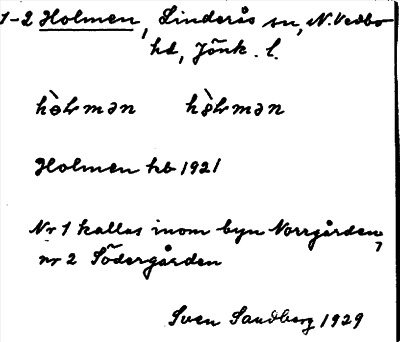 1-2 Holmen, Linderås sn, N. Vedbo
hd, Jönk. l.
Holmen hb 1921
Nr 1 kallas inom byn Norrgården,
nr 2 Södergården
Sven Sandberg 1929